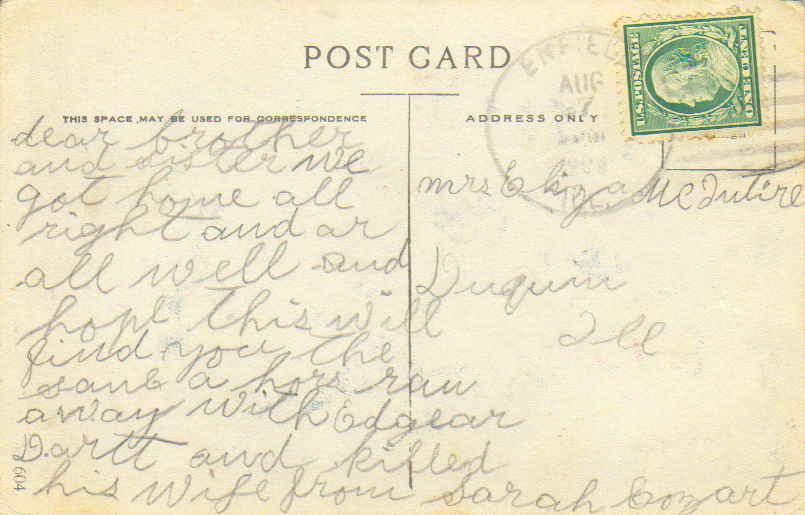 POST CARD
THIS SPACE, MAY BE USED FOR CORRESPONDENCE
dear brother
and sister we
got home all
right and ar
all well and
hope this will
find you the
same a hors ran
away with Edgear
Dartt and killed
his wife from Sarah Cozart
604
ADDRESS ONLY
ENFIELD
AUG
ILL.
U.S. POSTAGE
ONE CENT
mrs Eliza McIntire
Duquin
Ill